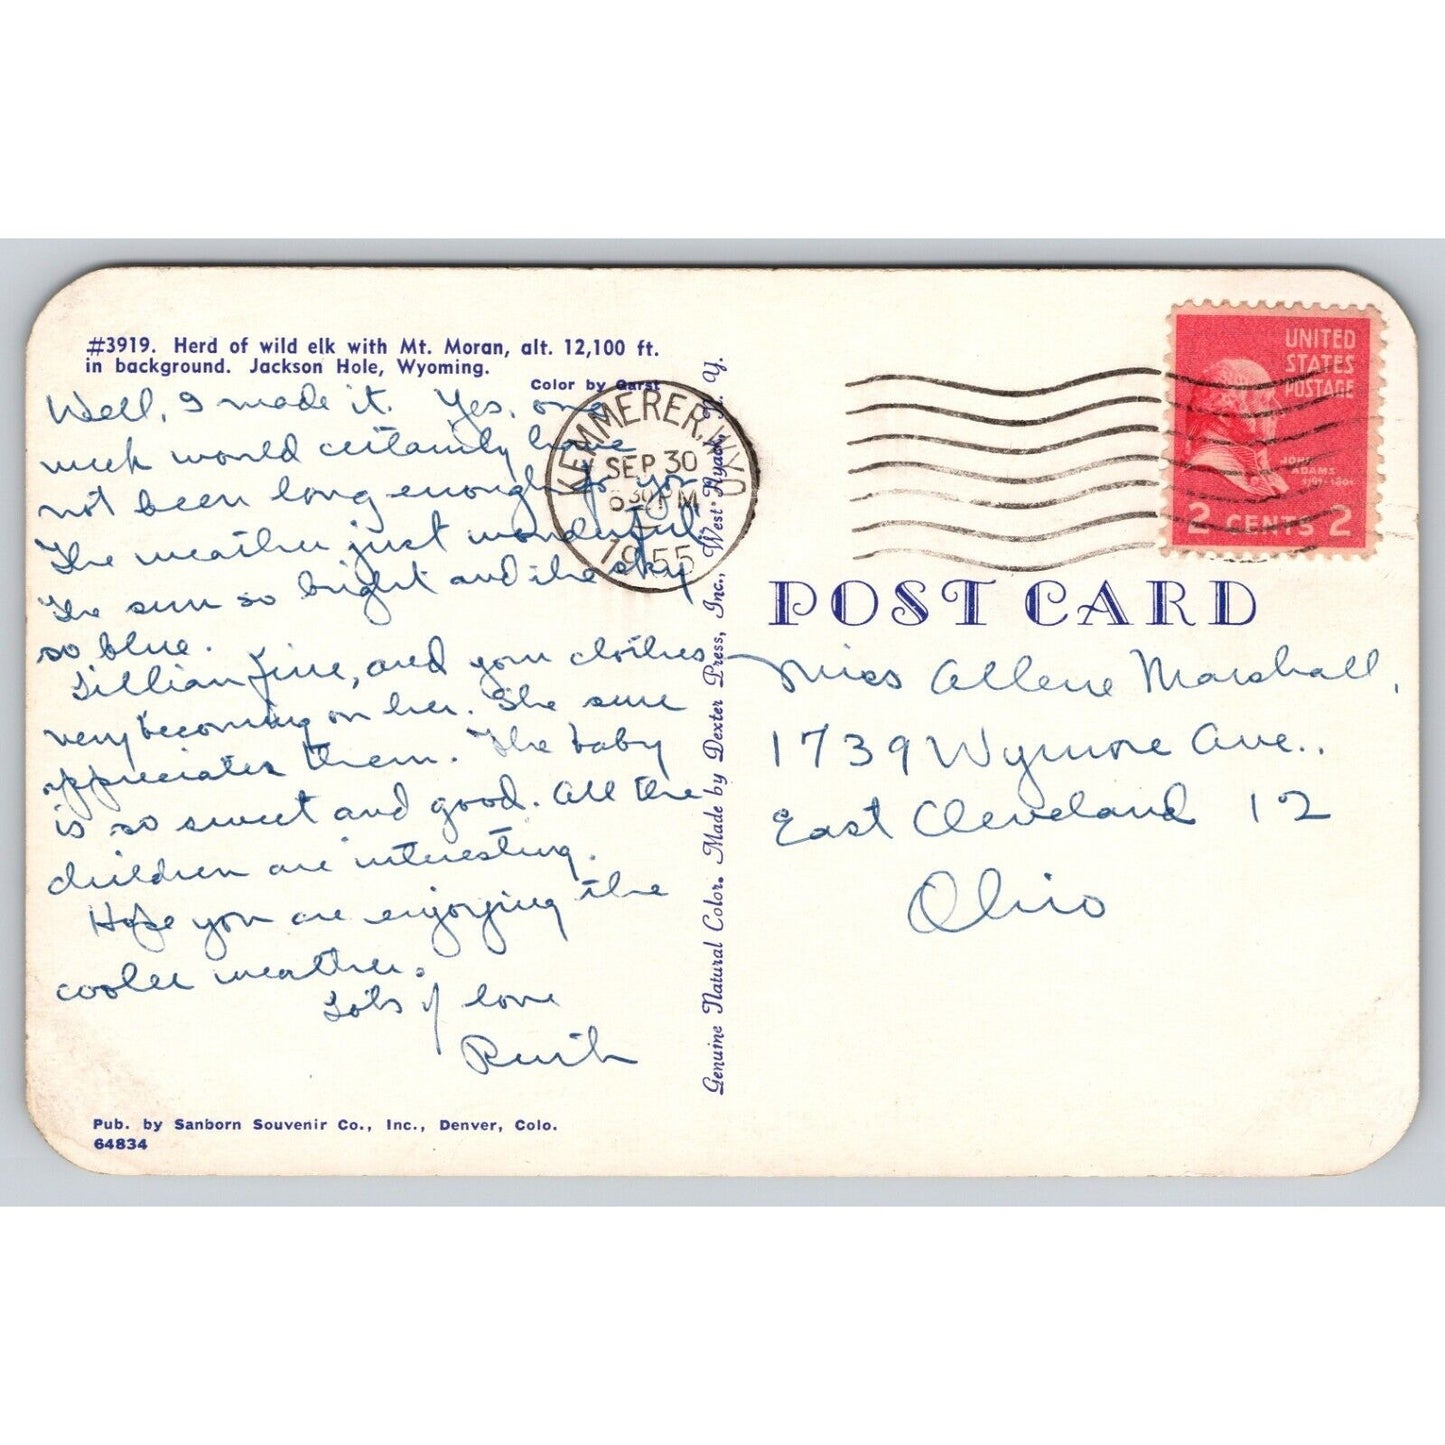 #3919. Herd of wild elk with Mt. Moran, alt. 12,100 ft.
in background. Jackson Hole, Wyoming.
Color by Garst
Well, I made it. Yes, one
week would certainly have
not been long enough for you
The weather just wonderful
The sun so bright and the sky
so blue.
Lillian fine, and your clothes
very becoming on her. She sure
appreciates them. The baby
is so sweet and good. All the
children are interesting.
Hope you are enjoying the
cooler weather.
Lots of love
Ruth
Pub. by Sanborn Souvenir Co., Inc., Denver, Colo.
64834
Genuine Natural Color. Made by Dexter Press, Inc., West Nyack, N. Y.
KEMMERER, WYO
SEP 30
6 30 PM
1955
UNITED
STATES
POSTAGE
JOHN
ADAMS
2 CENTS 2
POST CARD
Miss Allene Marshall,
1739 Wymore Ave.,
East Cleveland 12
Ohio